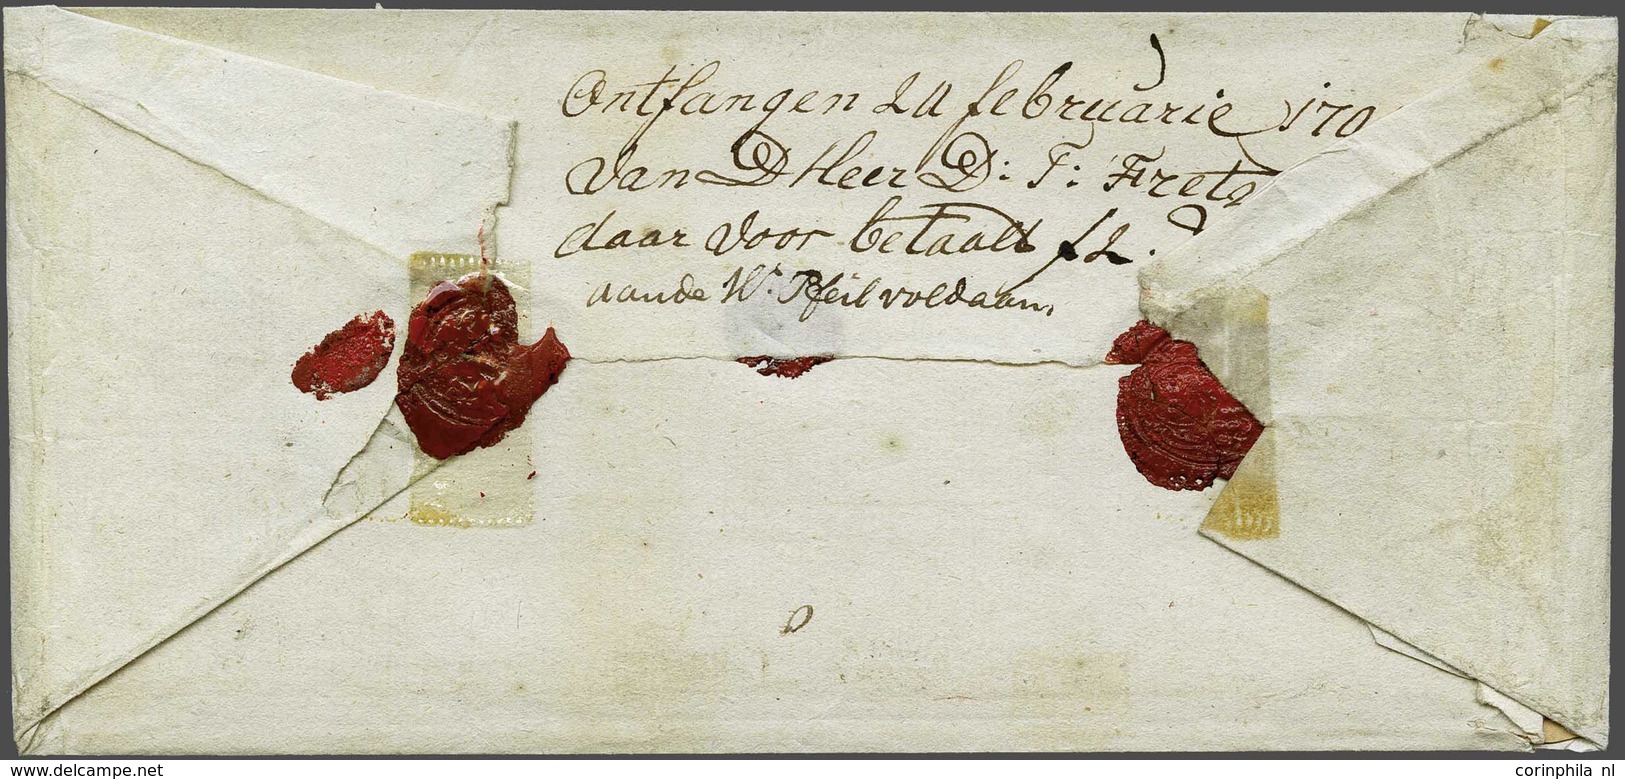 Ontfangen 20 februarie 170
van D Heer D: T: Fret
daar voor betaalt f 2.
aande Wr. Pfeil voldaan,
www.delcampe.net
corinphila nl